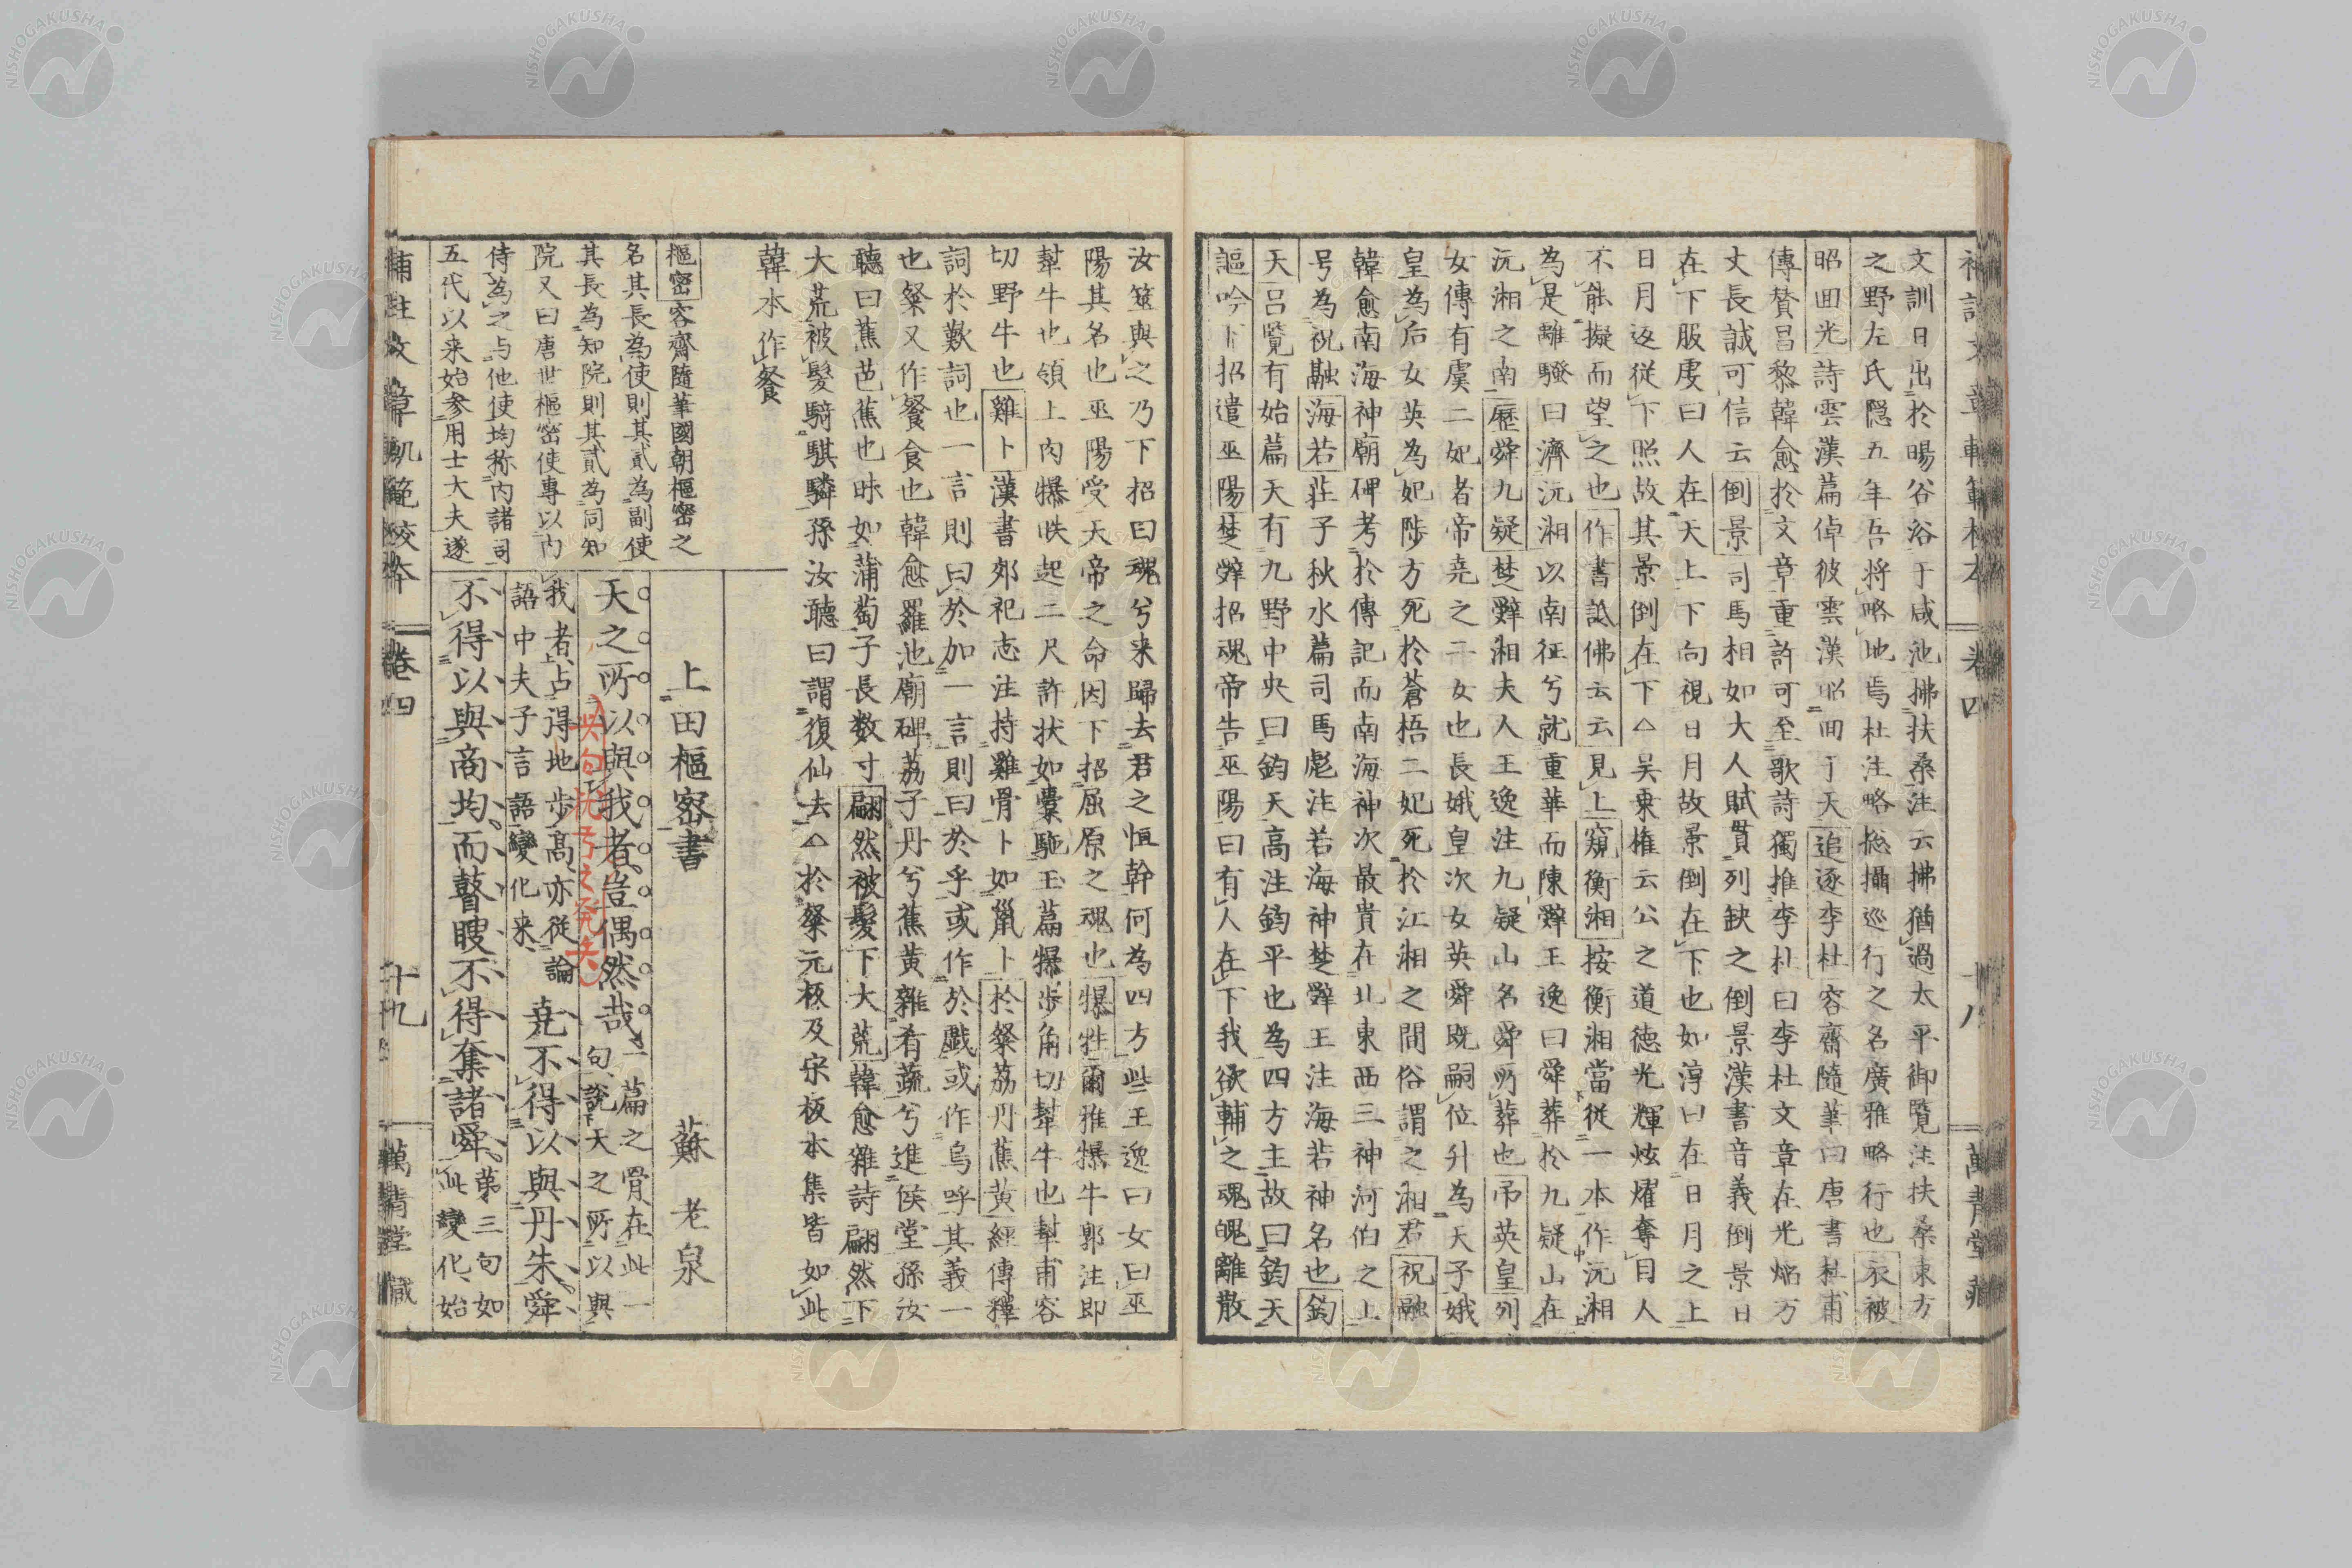 補註文章軌範校本 卷四 十八 萬青堂藏
文訓日出於暘谷浴于咸池拂扶桑注云拂猶過太平御覽注扶桑東方
之野左氏隠五年吾将略地焉杜注略総攝巡行之名廣雅略行也衣被
昭回光詩雲漢篇倬彼雲漢昭回于天追逐李杜容齋隨筆曰唐書杜甫
傳賛昌黎韓愈於文章重許可至歌詩獨推李杜曰李杜文章在光焔万
丈長誠可信云倒景司馬相如大人賦貫列缺之倒景漢書音義倒景日
在下服虔曰人在天上下向視日月故景倒在下也如淳曰在日月之上
日月返従下照故其景倒在下△吴東権云公之道徳光輝炫燿奪目人
不能擬而望之也作書詆佛云云見上窺衡湘按衡湘當従一本作沅湘
為是離騷曰濟沅湘以南征兮就重華而陳辤王逸曰舜葬於九疑山在
沅湘之南歷舜九疑楚辤湘夫人王逸注九疑山名舜所葬也弔英皇列
女傳有虞二妃者帝尭之二女也長娥皇次女英舜既嗣位升為天子娥
皇為后女英為妃陟方死於蒼梧二妃死於江湘之間俗謂之湘君祝融
韓愈南海神廟碑考於傳記而南海神次最貴在北東西三神河伯之上
号為祝融海若荘子秋水篇司馬彪注若海神楚辤王注海若神名也鈞
天呂覧有始篇天有九野中央曰鈞天高注鈞平也為四方主故曰鈞天
謳吟下招遣巫陽楚辤招魂帝告巫陽曰有人在下我欲輔之魂魄離散
汝筮與之乃下招曰魂兮来歸去君之恒幹何為四方些王逸曰女曰巫
陽其名也巫陽受天帝之命因下招屈原之魂也犦牲爾雅犦牛郭注即
犎牛也領上肉犦胅起二尺許状如橐駞玉篇犦歩角切犎牛也犎甫容
切野牛也雞卜漢書郊祀志注持雞骨卜如鼠卜於粲荔丹蕉黄經傳釋
詞於歎詞也一言則曰於加一言則曰於乎或作於戯或作烏呼其義一
也粲又作餐食也韓愈羅池廟碑荔子丹兮蕉黄雜肴蔬兮進侯堂孫汝
聴曰蕉芭蕉也味如蒲萄子長数寸翩然被髪下大荒韓愈雜詩翩然下
大荒被髪騎騏驎孫汝聴曰謂復仙去△於粲元板及宋板本集皆如此
韓本作餐
樞密容齋隨筆國朝樞密之
名其長為使則其貳為副使
其長為知院則其貳為同知
院又曰唐世樞密使專以内
侍為之与他使均称内諸司
五代以来始参用士大夫遂
上田樞密書 蘇老泉
天之所以與我者豈偶然哉一篇之骨在此一句説天之所以與
我者占得地歩髙亦従論語中夫子言語變化来尭不得以與丹朱舜
不得以與商均而瞽瞍不得奪諸舜第三句如此變化始
補註文章軌範校本 卷四 十九 萬青堂藏